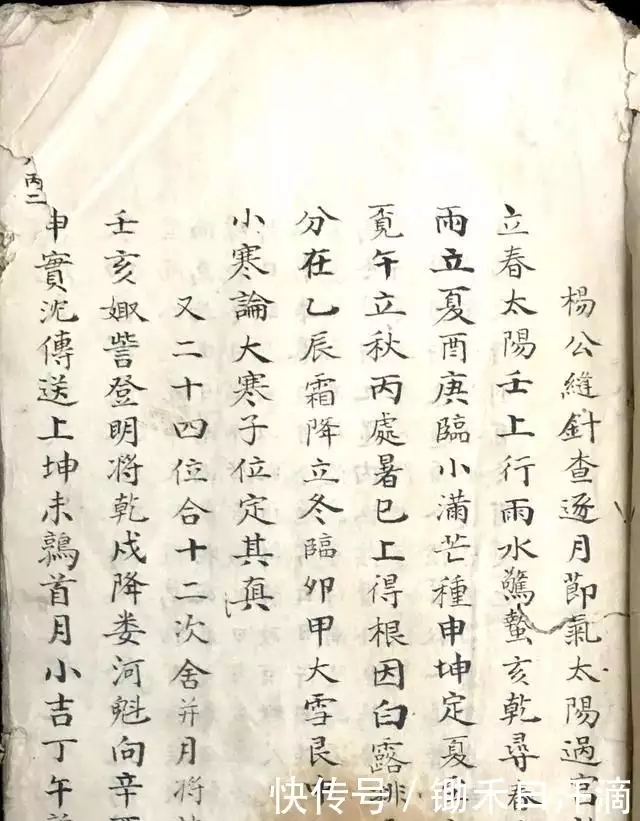 楊公縫針查逐月節氣太陽過宮
立春太陽壬上行雨水驚蟄亥乾尋春
雨立夏酉庚臨小滿芒種申坤定夏
覓午立秋丙處暑巳上得根因白露
分在乙辰霜降立冬臨卯甲大雪艮
小寒論大寒子位定其真
又二十四位合十二次舍并月將
壬亥娵訾登明將乾戌降婁河魁向辛
申實沈傳送上坤未鶉首月小吉丁午
丙二
快传号/锄禾日汗滴